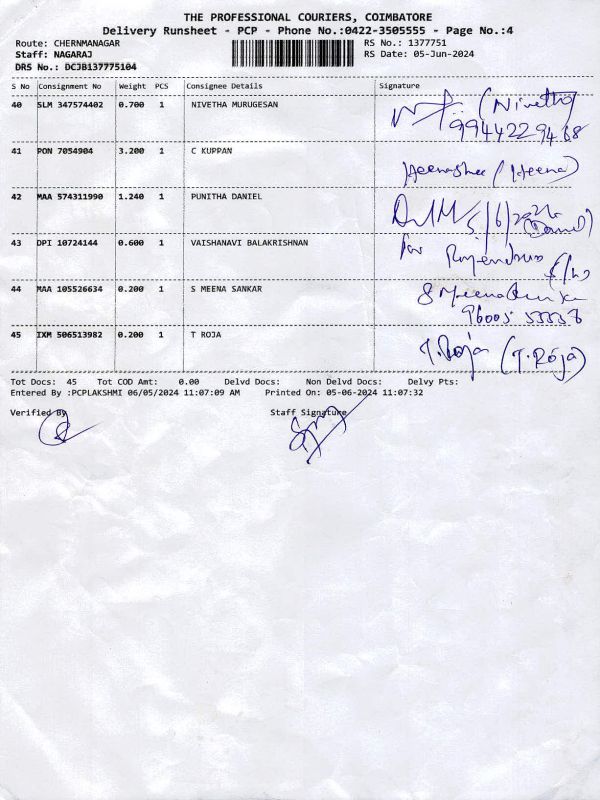 THE PROFESSIONAL COURIERS, COIMBATORE
Delivery Runsheet - PCP - Phone No.:0422-3505555 - Page No.:4
Route: CHERNMANAGAR RS No.: 1377751
Staff: NAGARAJ RS Date: 05-Jun-2024
DRS No.: DCJB137775104
S No Consignment No Weight PCS Consignee Details Signature
40 SLM 347574402 0.700 1 NIVETHA MURUGESAN (Nivetha)
9944229468
41 PON 7054904 3.200 1 C KUPPAN (Heena)
42 MAA 574311990 1.240 1 PUNITHA DANIEL 5/6/2024
(Daniel)
43 DPI 10724144 0.600 1 VAISHANAVI BALAKRISHNAN for
44 MAA 105526634 0.200 1 S MEENA SANKAR
96005 33338
45 IXM 506513982 0.200 1 T ROJA T.Roja (T.Roja)
Tot Docs: 45 Tot COD Amt: 0.00 Delvd Docs: Non Delvd Docs: Delvy Pts:
Entered By :PCPLAKSHMI 06/05/2024 11:07:09 AM Printed On: 05-06-2024 11:07:32
Verified By Staff Signature